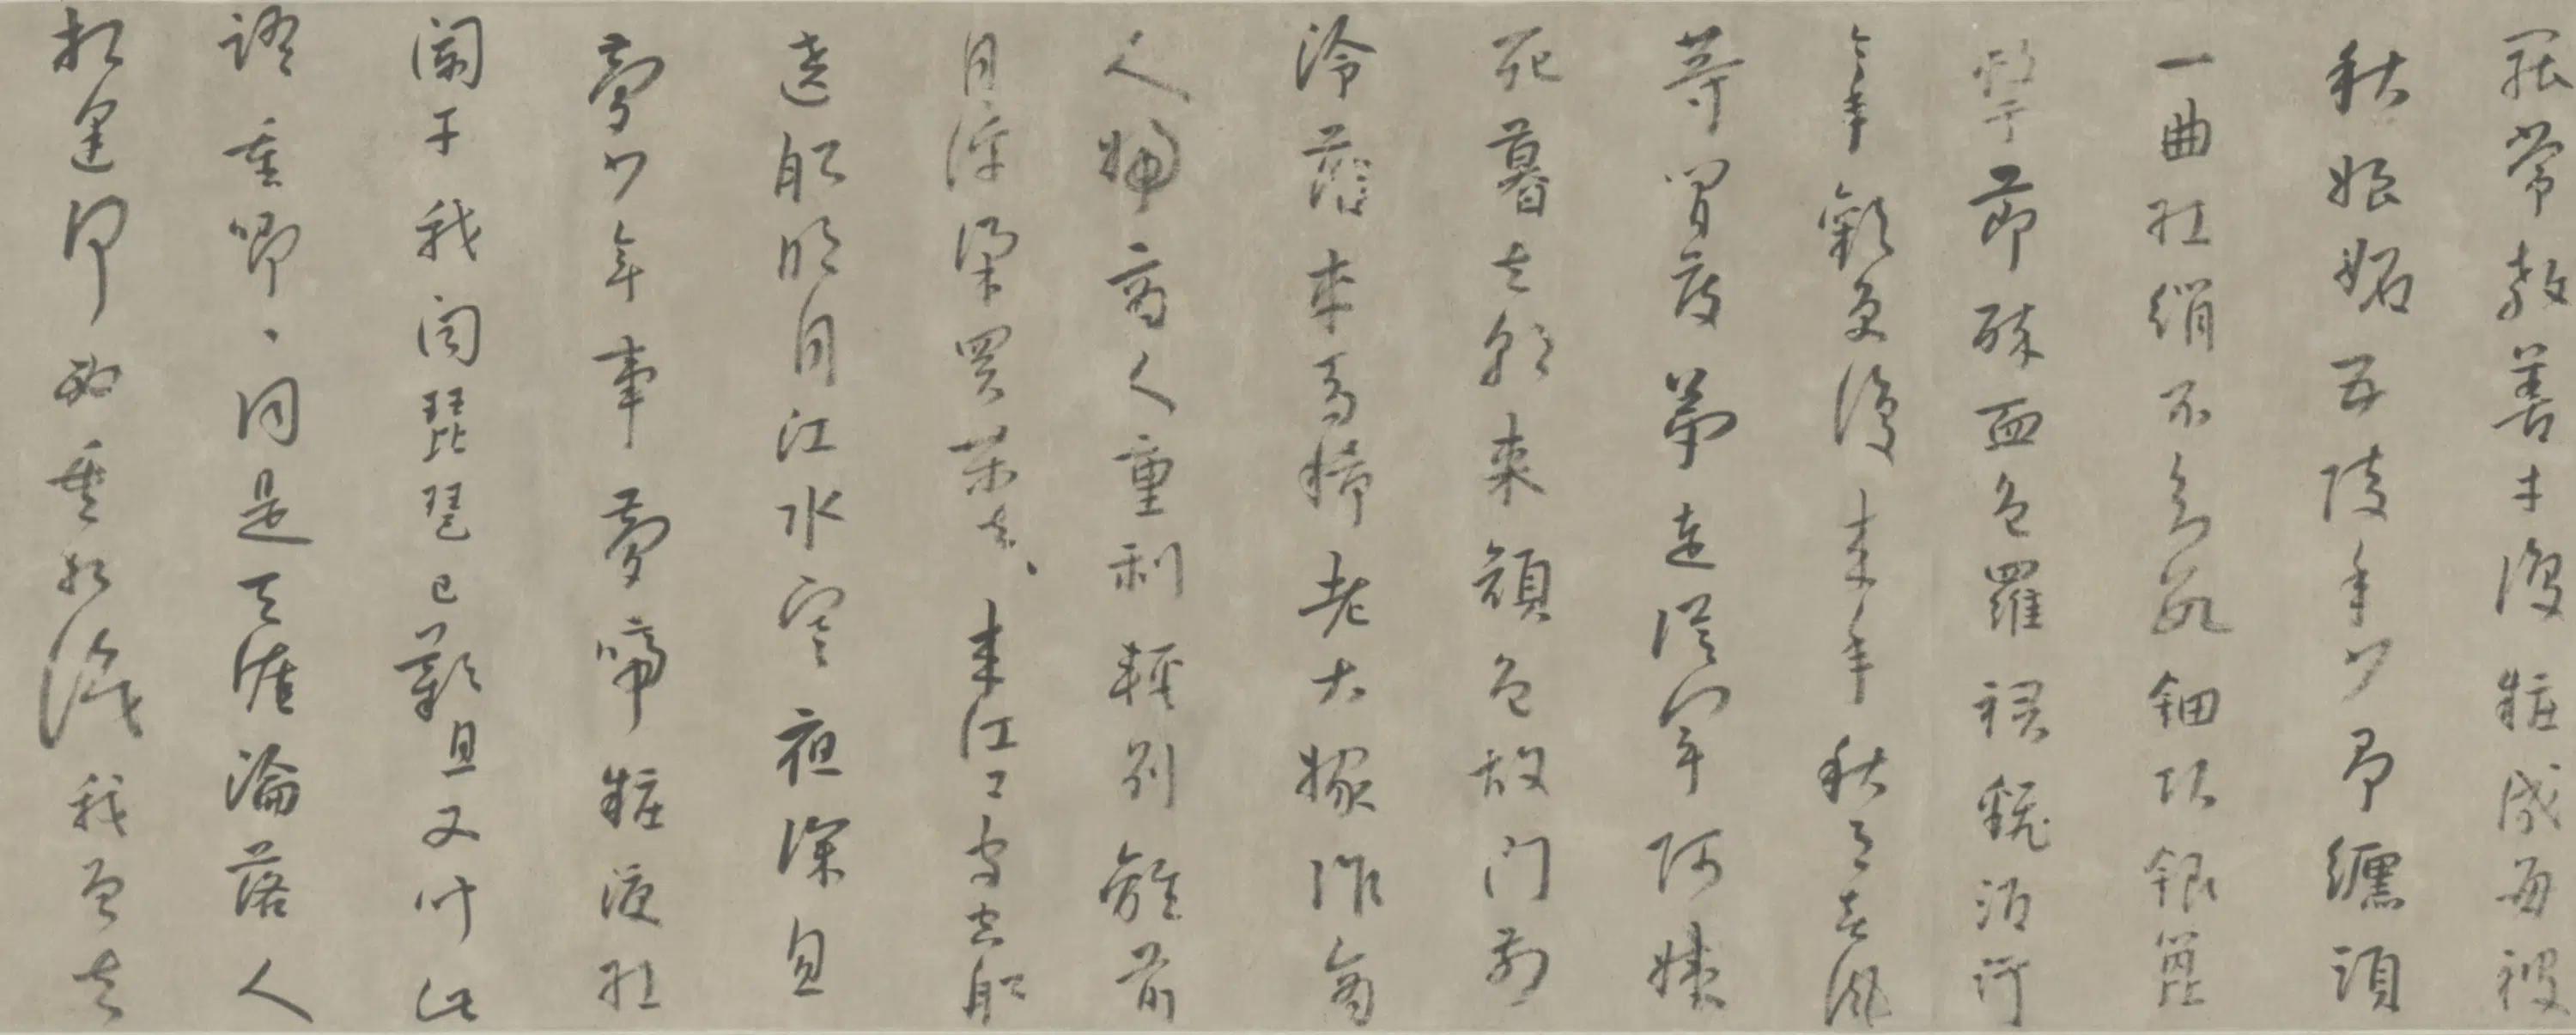 罷常教善才復粧成每被
秋娘妬五陵年少爭纏頭
一曲紅綃不知數鈿頭銀篦
擊節碎血色羅裙飜酒汙
今年歡笑復來年秋月春風
等閒度弟走從軍阿姨
死暮去朝來顏色故門前
冷落車馬稀老大嫁作商
人婦商人重利輕別離前
月浮梁買茶去〻來江口守空船
遶船明月江水寒夜深忽
夢少年事夢啼粧淚紅
闌干我聞琵琶已歎息又聞此
語重唧〻同是天涯淪落人
相逢何必曾相識我從去